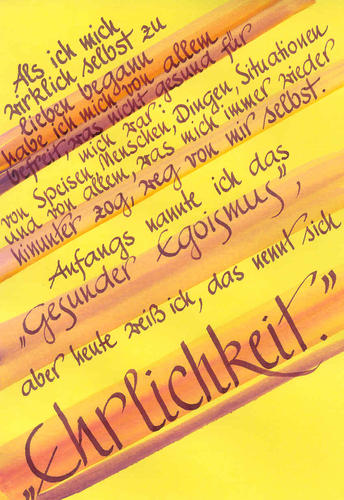 Als ich mich
wirklich selbst zu
lieben begann
habe ich mich von allem
befreit, was nicht gesund für
mich war:
von Speisen, Menschen, Dingen, Situationen
und von allem, was mich immer wieder
hinunter zog, weg von mir selbst.
Anfangs nannte ich das
„Gesunder Egoismus",
aber heute weiß ich, das nennt sich
„Ehrlichkeit."